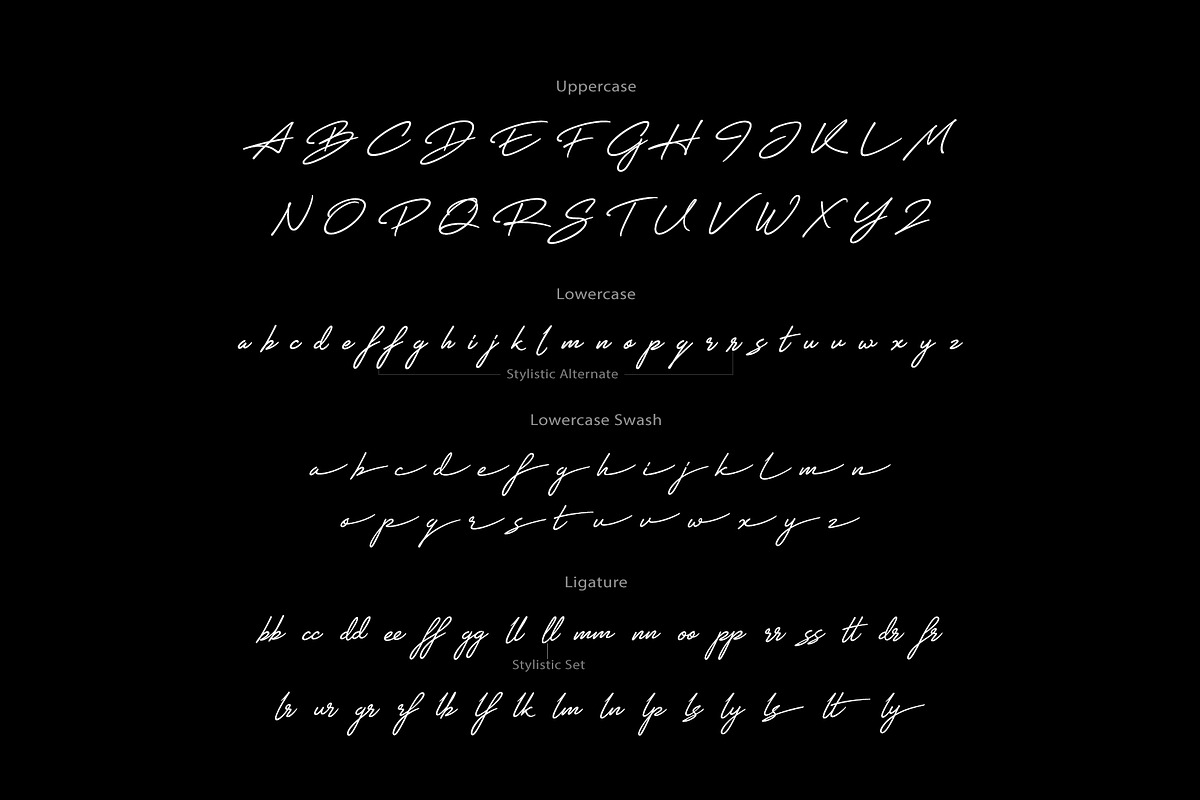 Uppercase
A B C D E F G H I J K L M
N O P Q R S T U V W X Y Z
Lowercase
a b c d e f f g h i j k l m n o p q r r s t u v w x y z
Stylistic Alternate
Lowercase Swash
a b c d e f g h i j k l m n
o p q r s t u v w x y z
Ligature
bb cc dd ee ff gg ll ll mm nn oo pp rr ss tt dr fr
Stylistic Set
lr ur gr rf lb lf lk lm ln lp ls ly ls lt ly